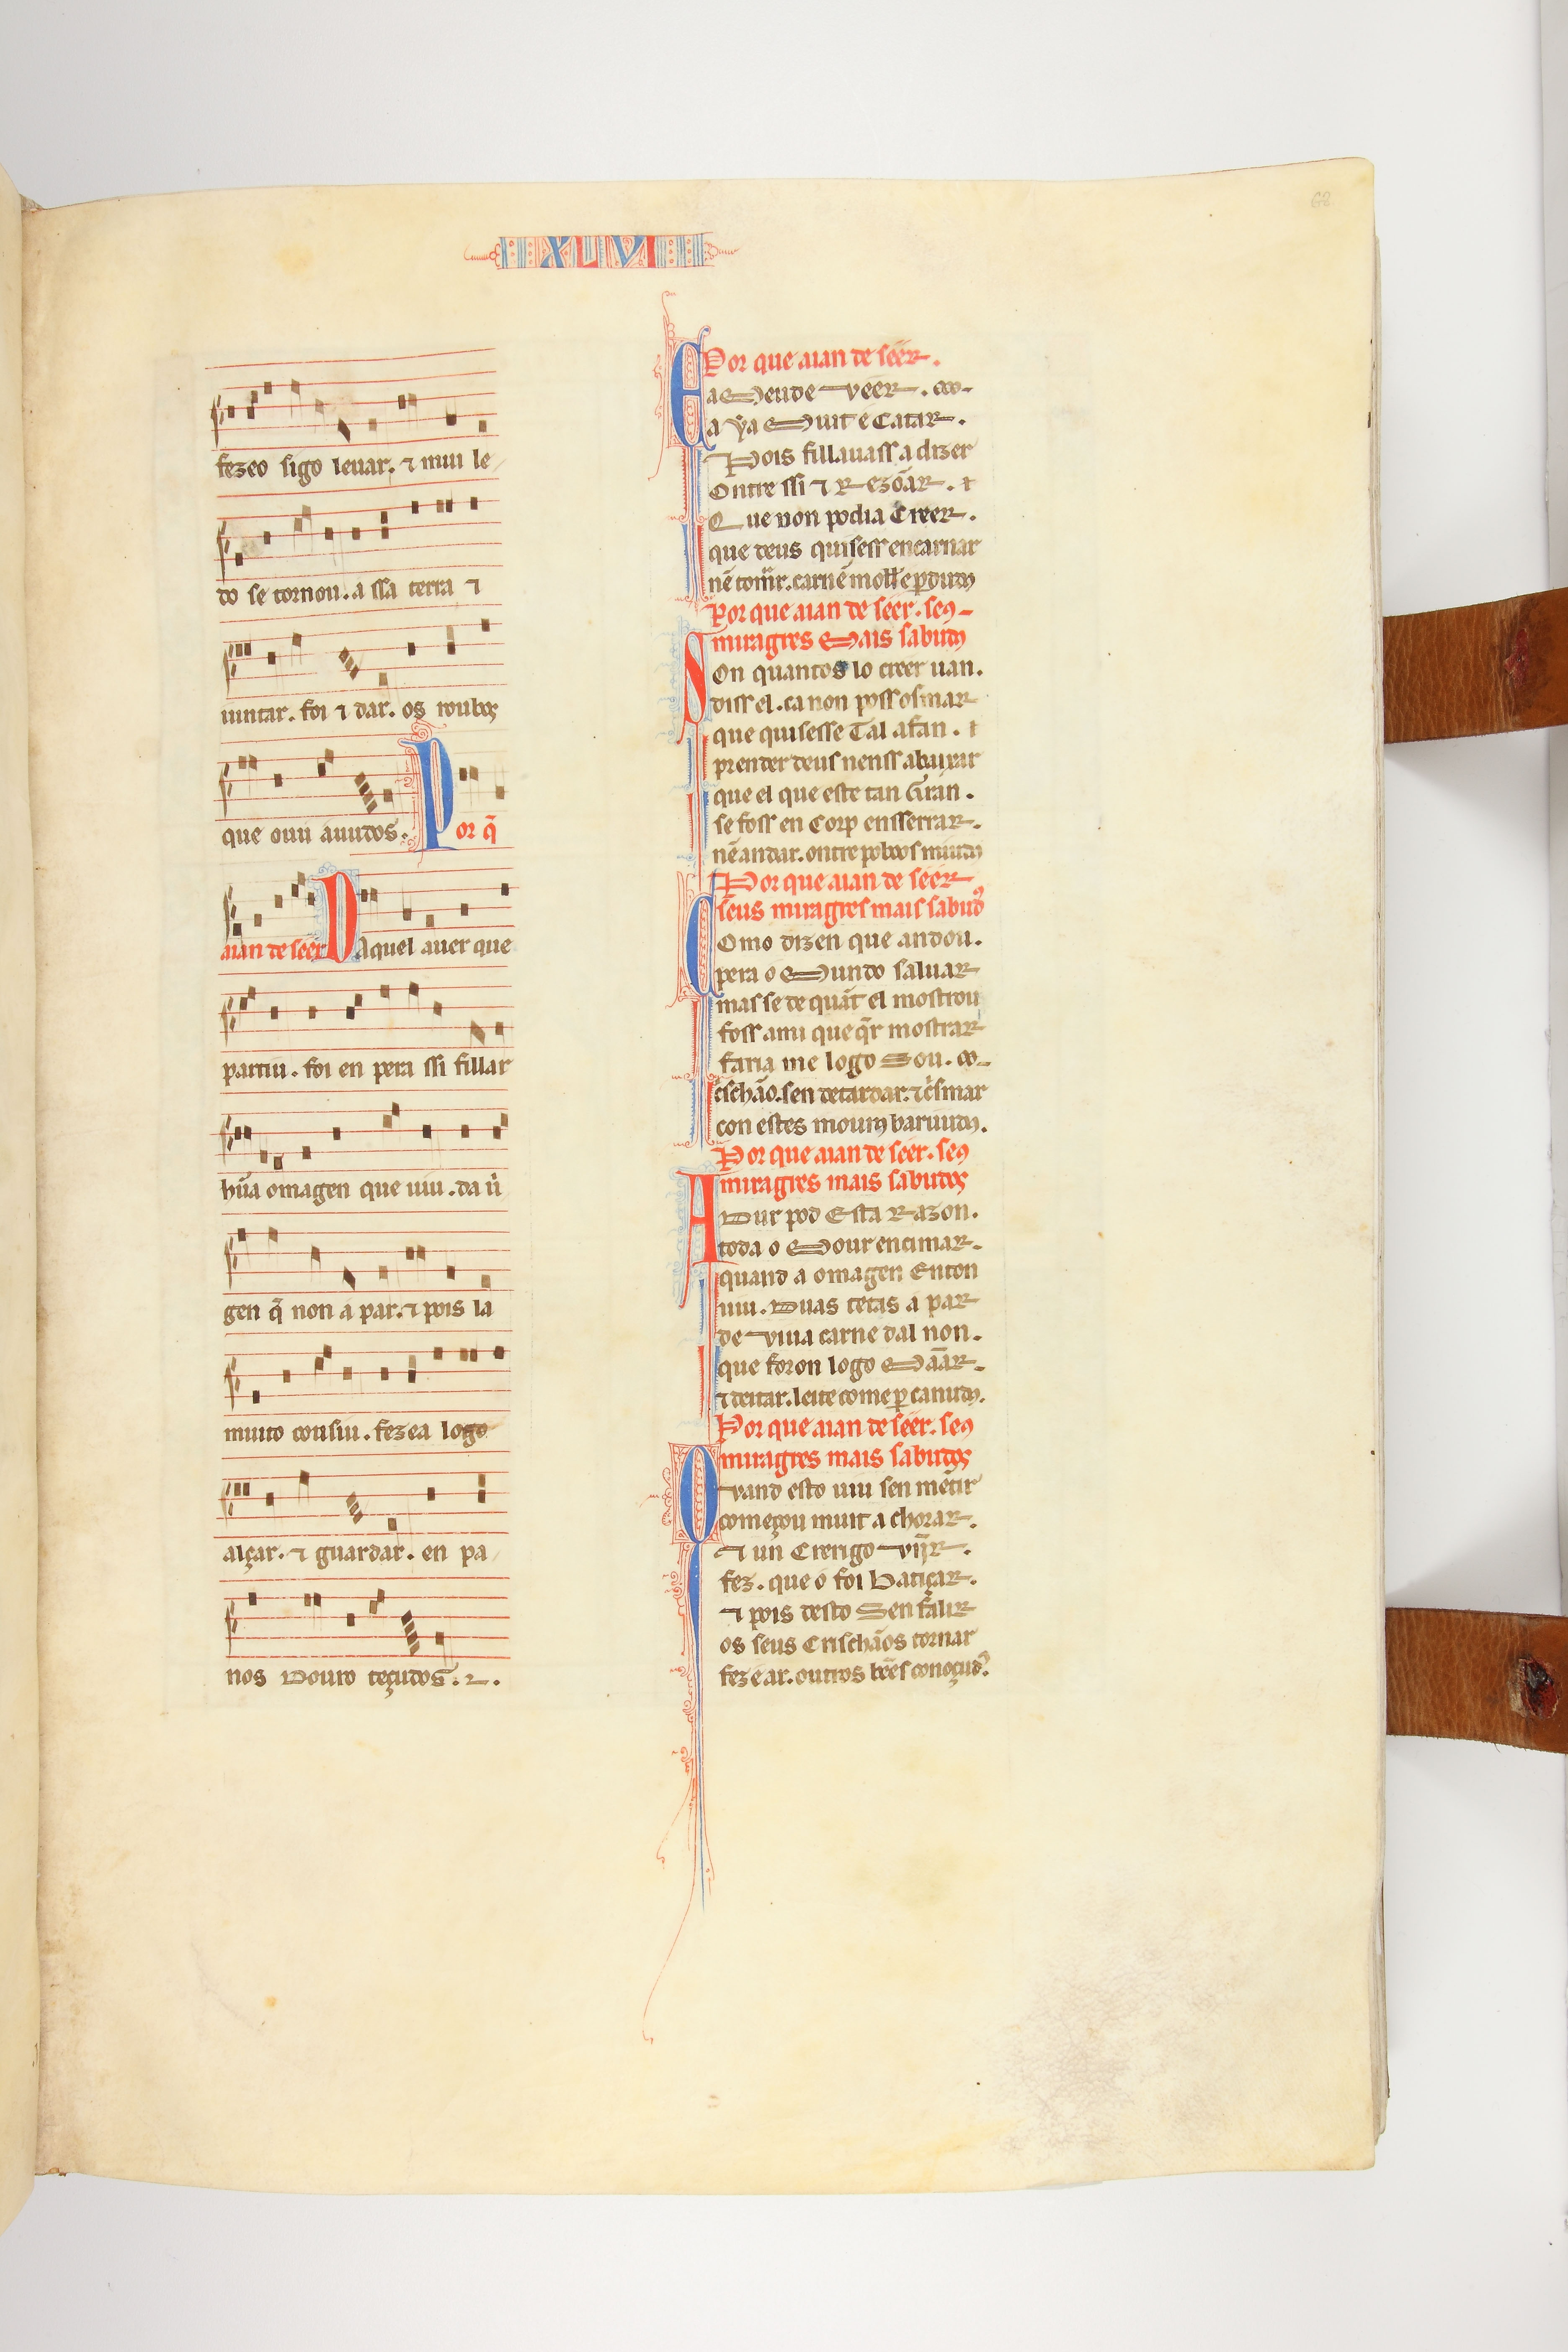 XLVI
68
fezeo sigo leuar. ⁊ mui le
do se tornou. a ssa terra ⁊
iuntar. foi ⁊ dar. os roubos
que ouu auudos. Por q̃
aian de seer Daquel auer que
partiu. foi en pera ssi fillar
hũa omagen que uiu. da uˀ
gen q̃ non a par. ⁊ pois la
muito cousiu. fezea logo
alçar. ⁊ guardar. en pa
nos Douro teçudos.
Por que aian de seer.
E a Meude veer. co-
a ya Muit e Catar.
Pois fillauass a dizer
Ontre ssi ⁊ Rezõar. ⁊
Que non podia Creer.
que deus quisess encarnar
nẽ tom̃r. carnẽ mollˀe pˀdudꝯ
Por que aian de seer. seꝯ-
miragres Mais sabudꝯ
Son quantos lo creer uan.
diss el. ca non poss osmar
que quisesse Tal afan. ⁊
prender deus nenss abaixar
que el que este tan Gran.
se foss en Corp ensserrar.
nẽ andar. ontre poboos miudꝯ
Por que aian de seer
seus miragres mais sabudꝯ
Como dizen que andou.
pera o Mundo saluar
mas se de quãt el mostrou
foss a mi que q̃r mostrar
faria me logo Sou. co-
cˀischão. sen detardar. ⁊ cˀismar
con estes mourꝯ baruudꝯ.
Por que aian de seer. seꝯ
miragres mais sabudos
A Dur pod Esta Razon.
toda o Mour encimar.
quand a omagen Enton
uiu. Duas tetas a par
de viua carne dal non.
que foron logo Mãar.
⁊ deitar. leite come ꝑ canudꝯ.
Por que aian de seer. seꝯ
miragres mais sabudos
Quand esto uiu sen mẽtir
começou muit a chorar.
⁊ un Crerigo vĩjr.
fez. que o foi Batiçar.
⁊ pois desto Sen falir
os seus Crischãos tornar
fez e ar. outros bẽes conoçudꝯ.